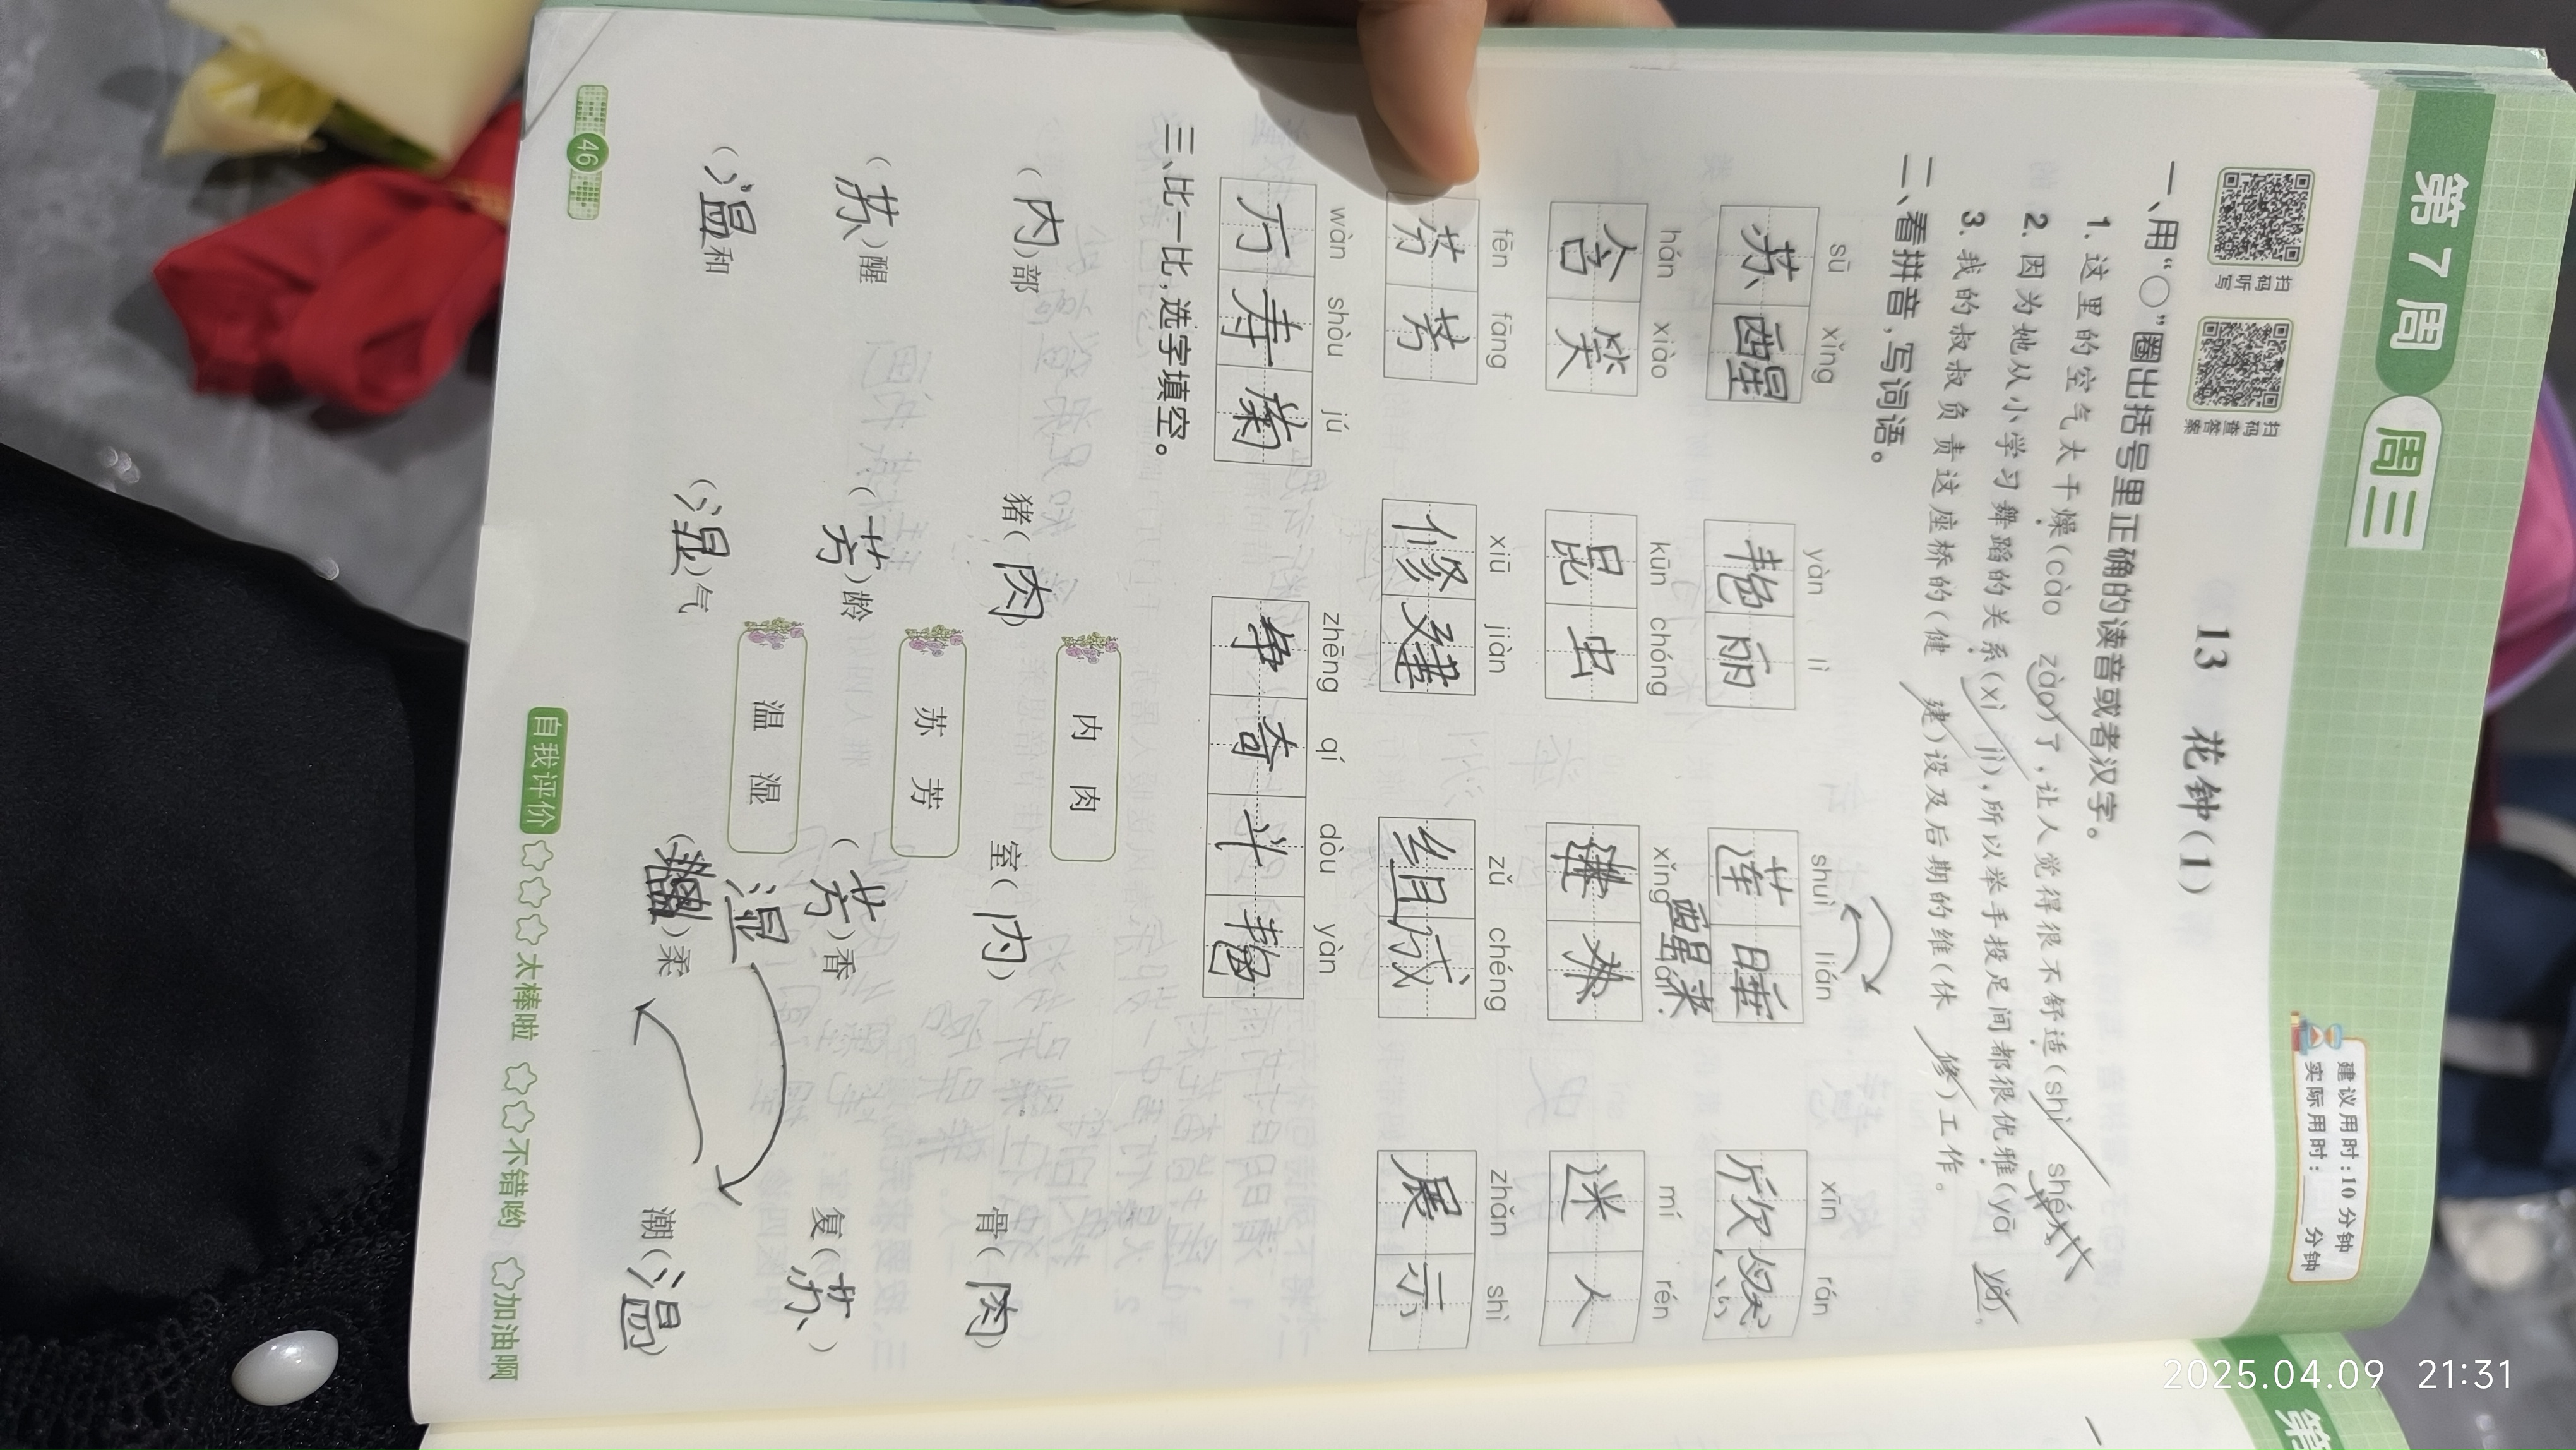 第7周 周三
扫码听写
扫码查答案
13 花钟(1)
建议用时:10分钟
实际用时:____分钟
一、用“○”圈出括号里正确的读音或者汉字。
1. 这里的空气太干燥(cào zào)了,让人觉得很不舒适(shì shé)。
2. 因为她从小学习舞蹈的关系(xì jì),所以举手投足间都很优雅(yā yǎ)。
3. 我的叔叔负责这座桥的(健 建)设及后期的维(休 修)工作。
二、看拼音,写词语。
sū xǐng yàn lì shuì lián xīn rán
苏醒 艳丽 莲睡 欣然
hán xiào kūn chóng xǐng lái mí rén
含笑 昆虫 醒来 迷人
fēn fāng xiū jiàn zǔ chéng zhǎn shì
芬芳 修建 组成 展示
wàn shòu jú zhēng qí dòu yàn
万寿菊 争奇斗艳
三、比一比,选字填空。
内 肉
(内)部 猪(肉) 室(内) 骨(肉)
苏 芳
(苏)醒 (芳)龄 (芳)香 复(苏)
温 湿
(温)和 (湿)气 ( )柔 潮(温)
湿
46
自我评价 太棒啦 不错哟 加油啊
第
一
2025.04.09 21:31